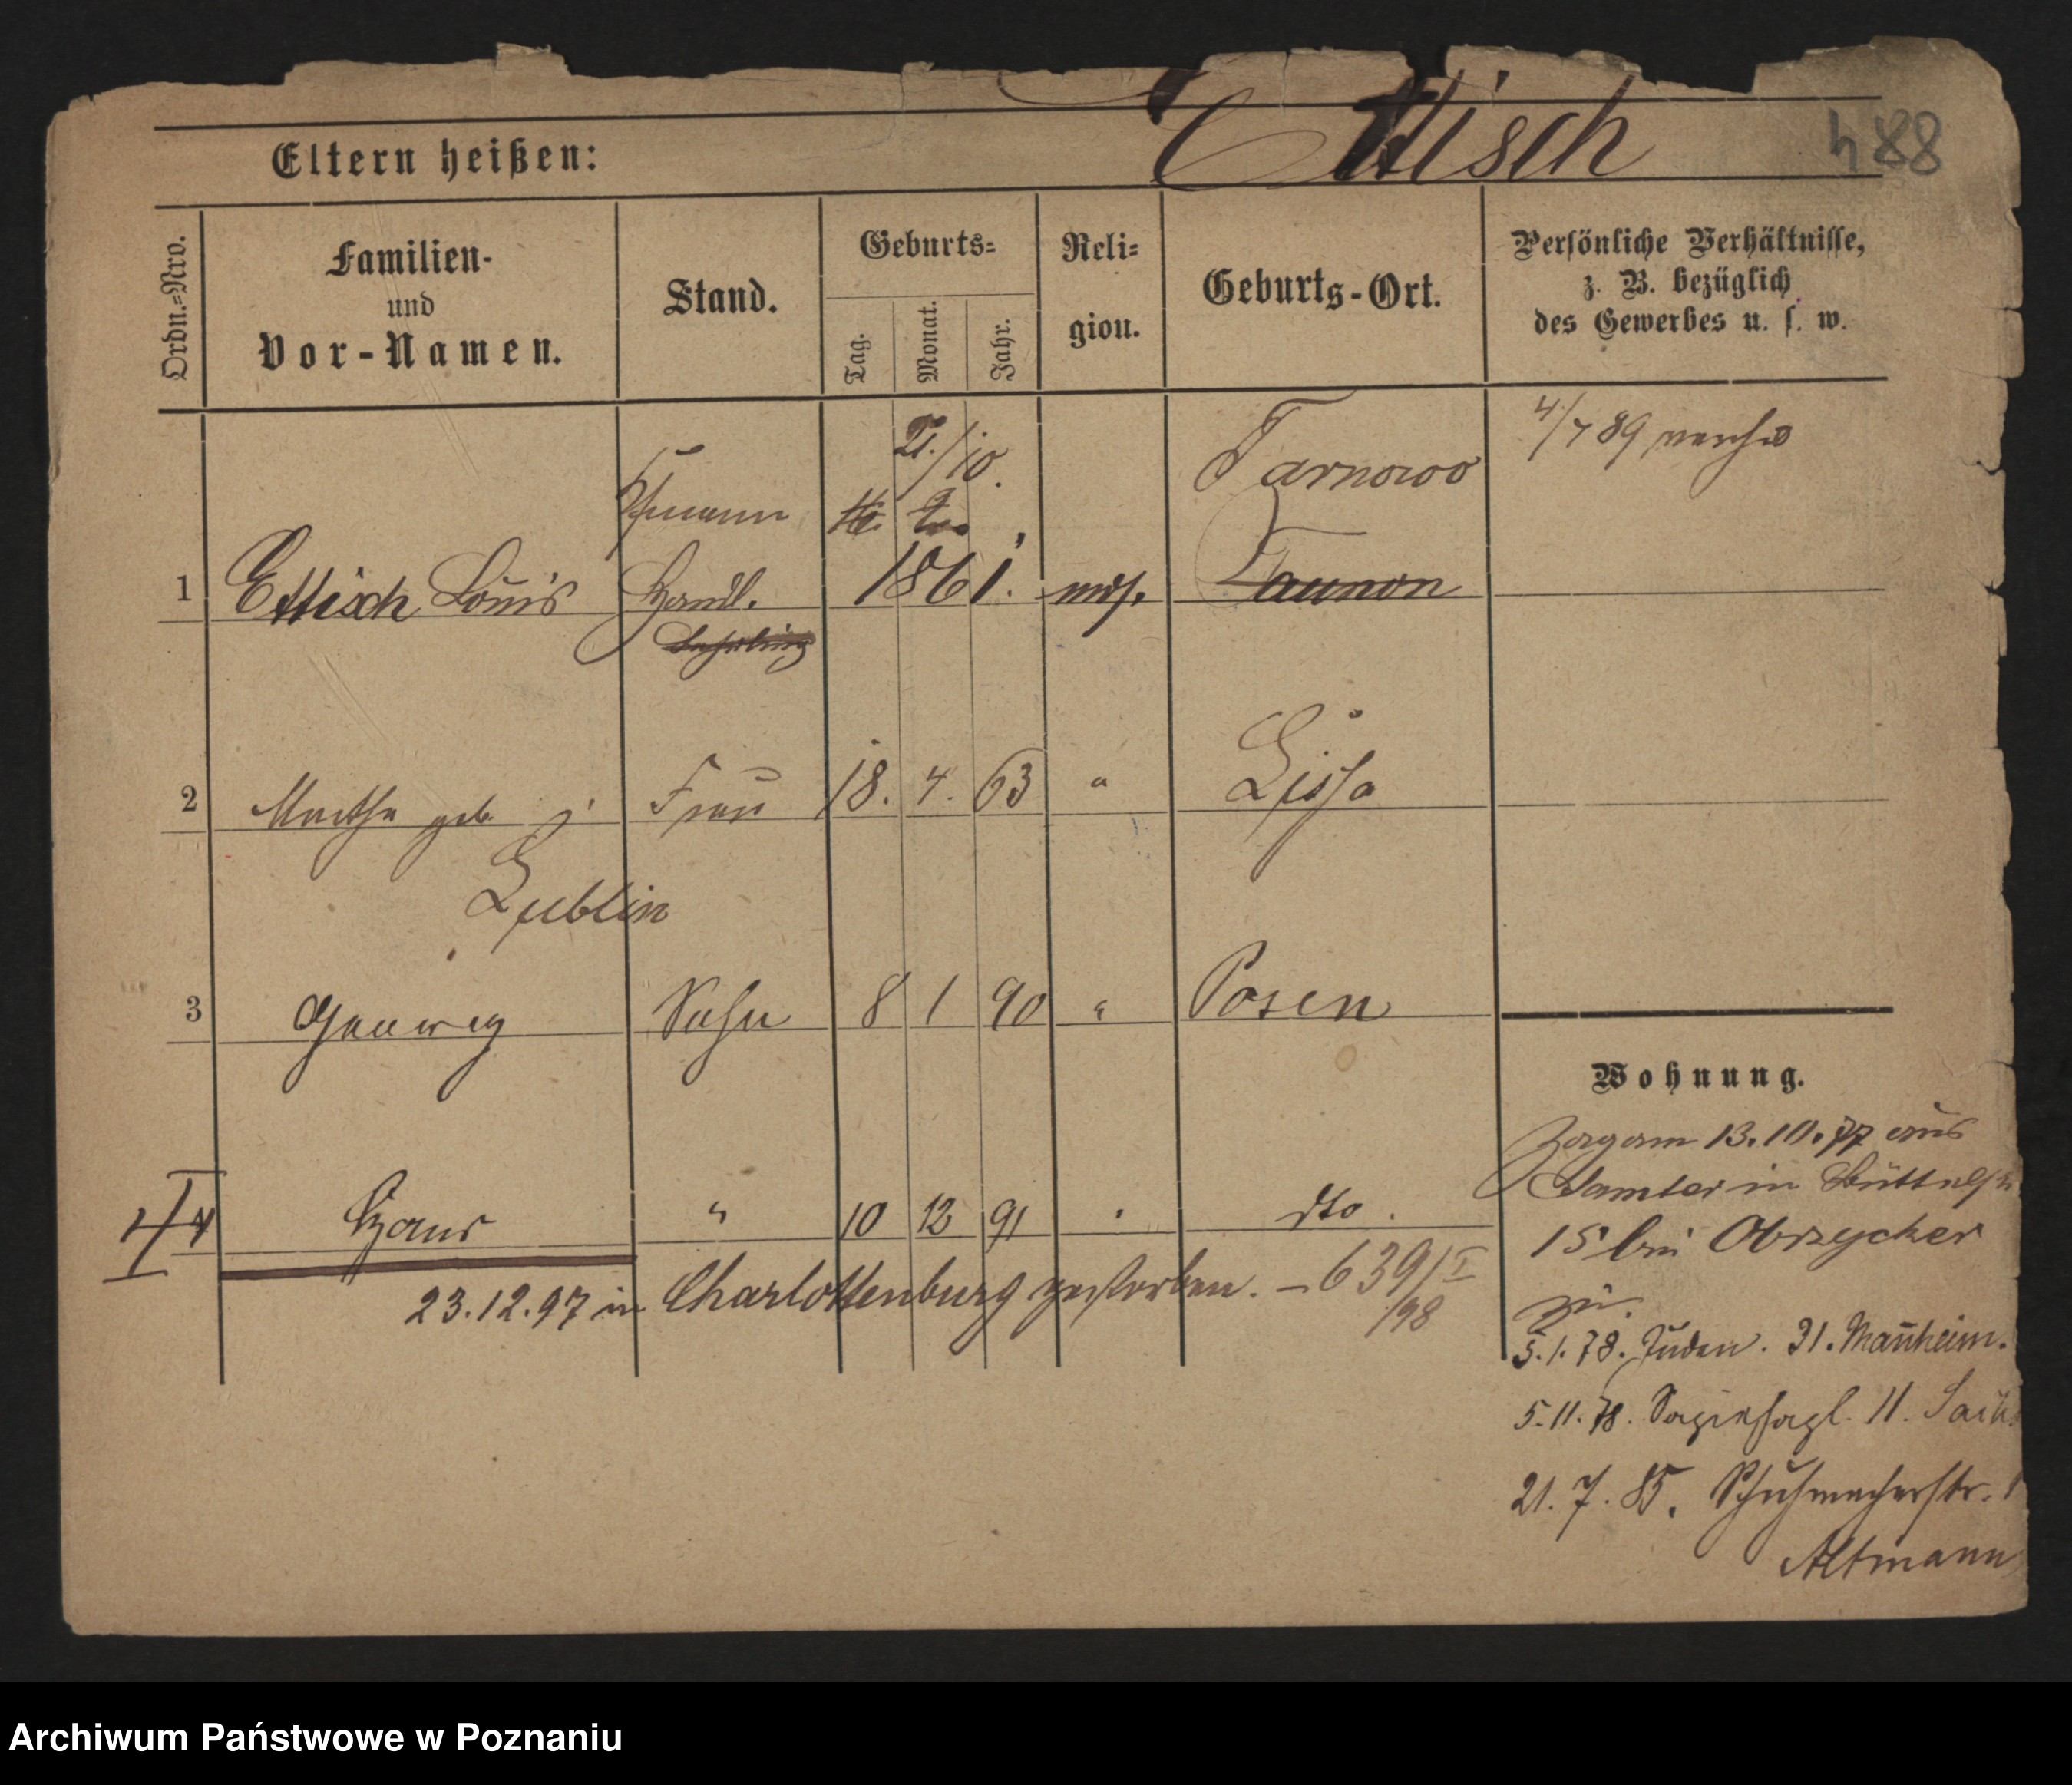 Ettisch
488
Eltern heißen:
Ordn.=Nro.
Familien-
und
Vor-Namen.
Stand.
Geburts=
Tag.
Monat.
Jahr.
Reli=
gion.
Geburts-Ort.
Persönliche Verhältnisse,
z. B. bezüglich
des Gewerbes u. s. w.
21./10.
Kfmann
Tarnowo
4/7 89
1 Ettisch Louis Handl. 1861. mos. 
Lehrling
2 Marthe geb. Frau 18. 4. 63 " Lissa
Lublin
3 Georg Sohn 8 1 90 " Posen
4 Hans " 10 12 91 " dto.
23.12.97 in Charlottenburg gestorben. - 639/I
/98
Wohnung.
Zog am 13.10.77 aus
Samter in Büttelstr
15 bei Obrzycker
zu.
5.1.78. Juden. 31. Manheim.
5.11.78. Sapiehapl. 11.
21. 7. 85. Schuhmacherstr.
Altmann
Archiwum Państwowe w Poznaniu